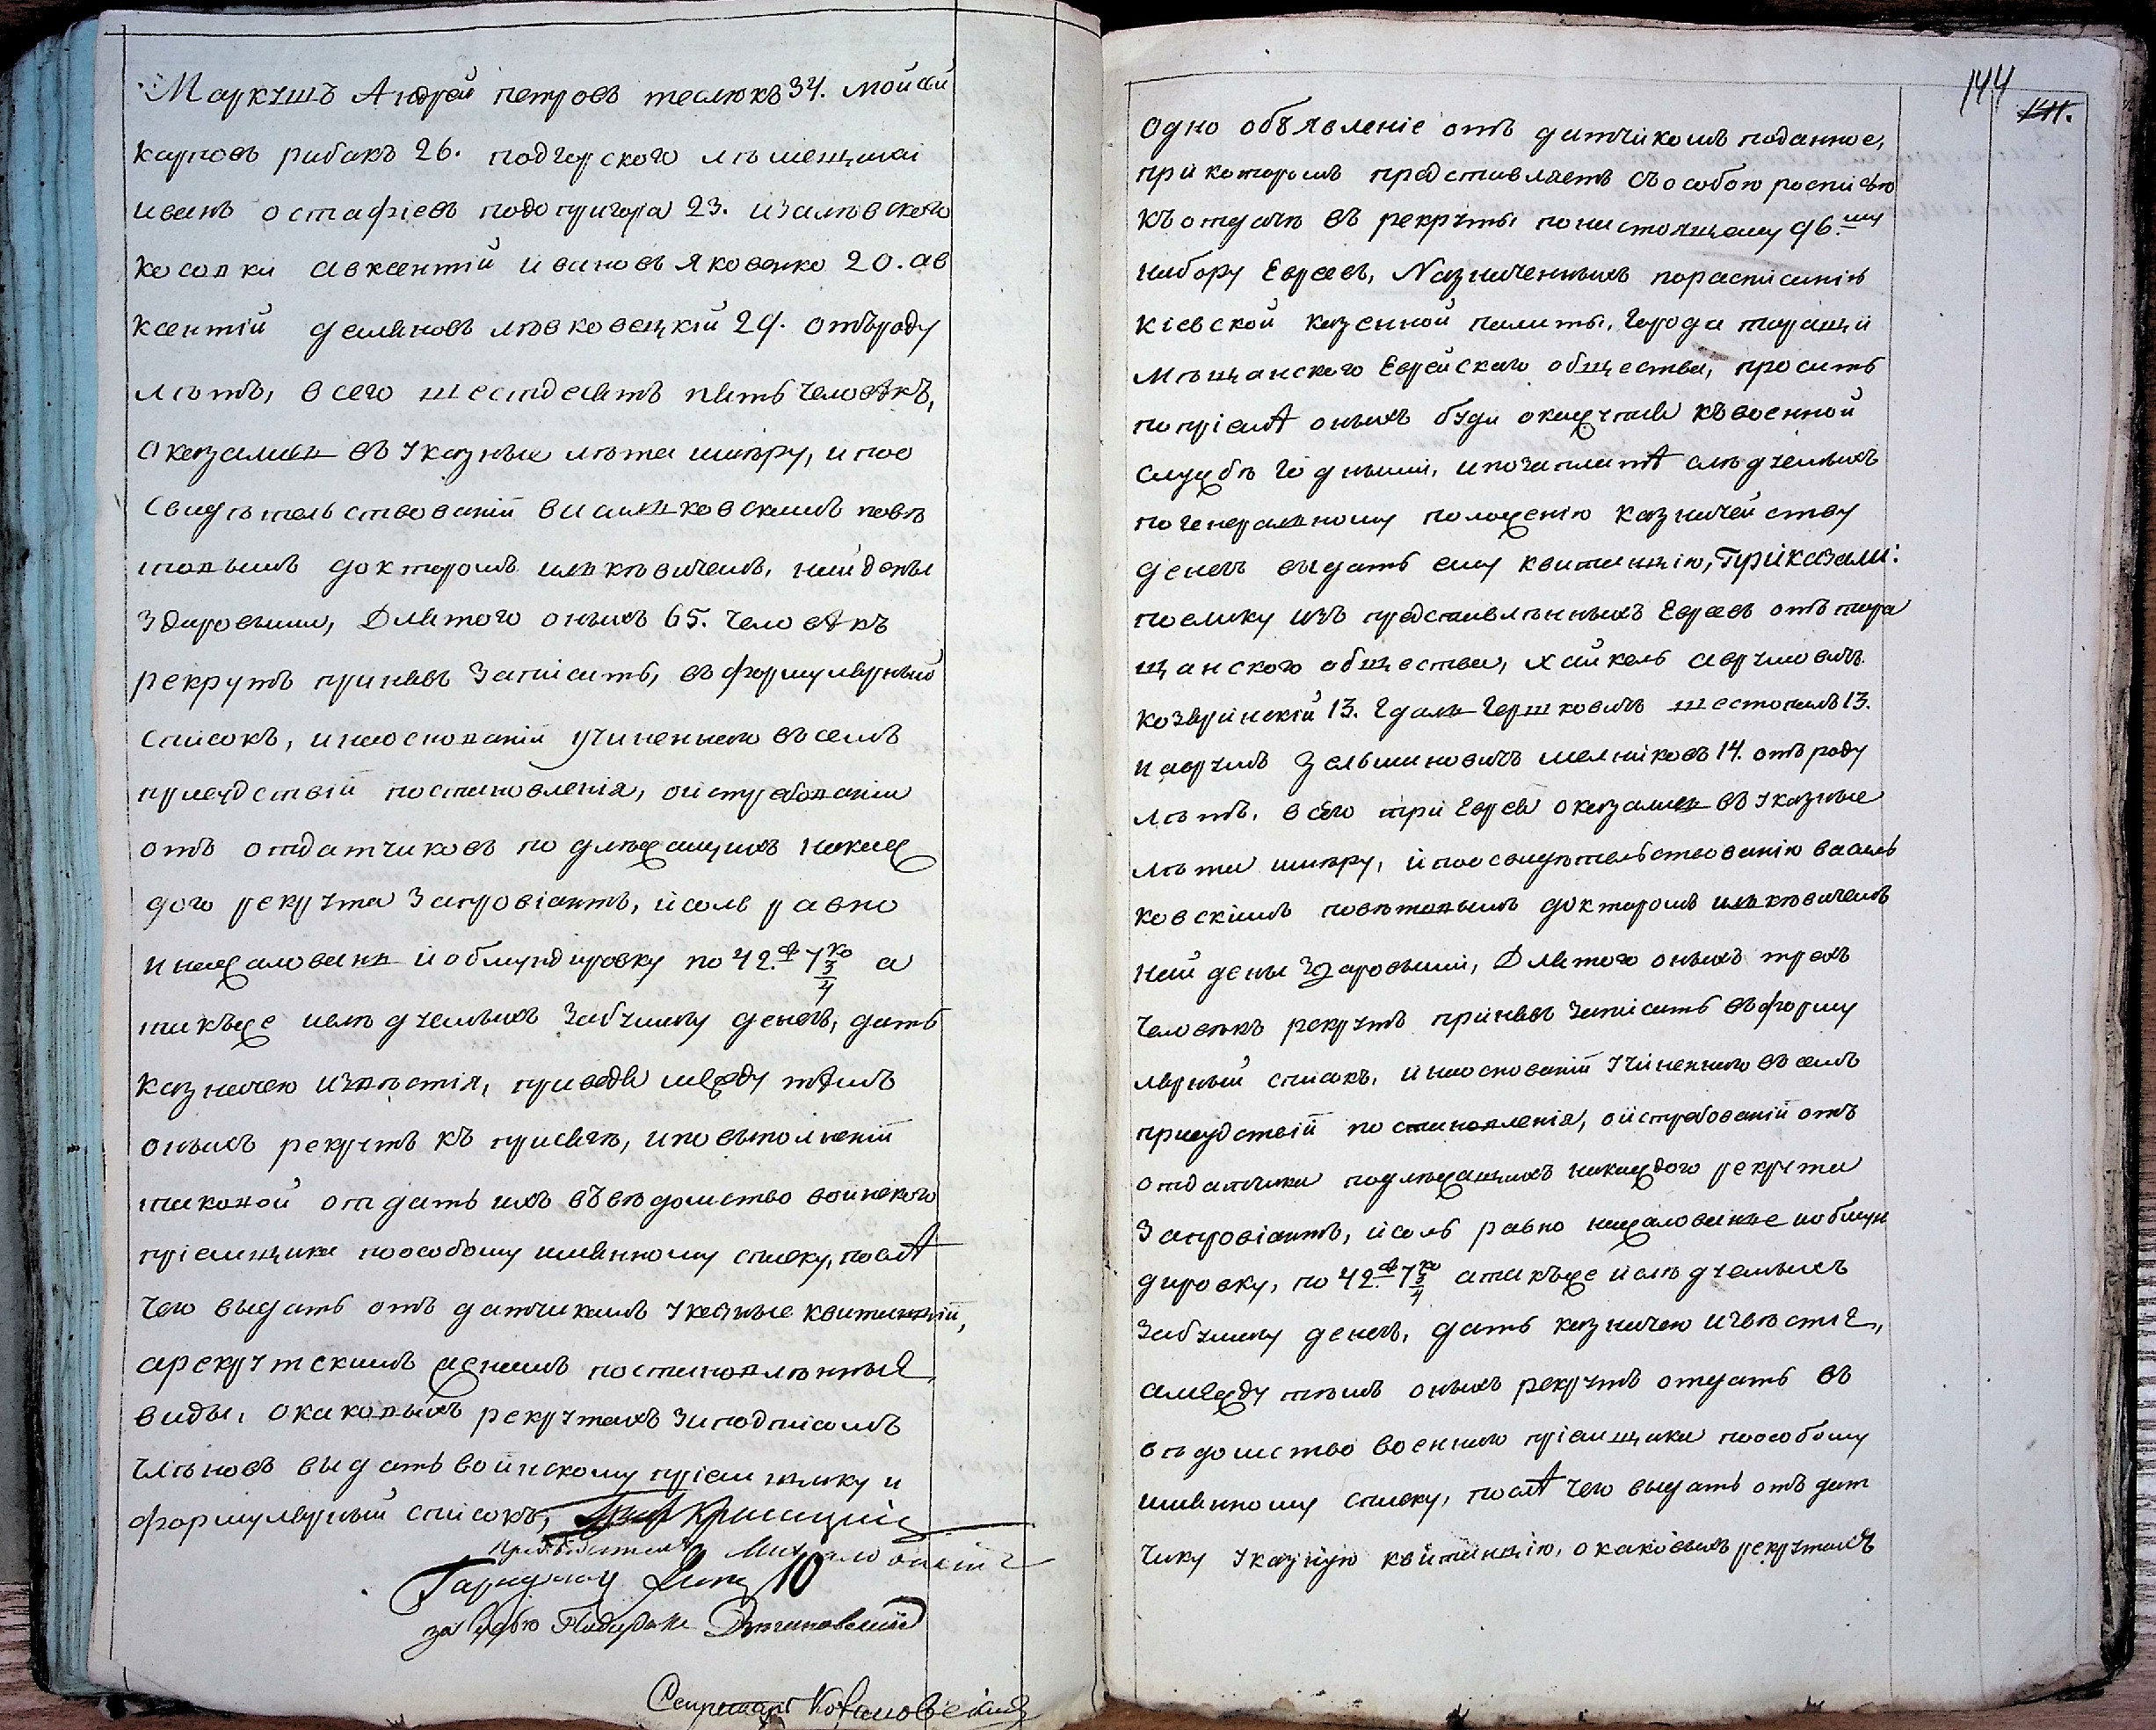 Маркушъ Андрей петровъ теслюкъ 34. Мойсей
карповъ рибакъ 26. подгорского
иванъ остафіевъ подопригора 23.
косовки авксентій ивановъ яковенко 20. ав
ксентій деляновъ левковецкій 24. отъроду
лѣтъ, всего шестдесятъ пять человѣкъ,
оказались въуказные лѣта имѣру, ипоо
свидѣтельствованій василковскимъ повѣ
товымъ докторомъ найдены
здоровыми, Длятого оныхъ 65. человѣкъ
рекрутъ принявъ записать, въформулярный
списокъ, инаоснованій учиненного въсемъ
присудствій постановленія, оистребованіи
отъ отдатчиковъ подлежащихъ накаж
дого рекрута запровіантъ, исоль равно
инажалованя иобмундировку по 42. р 7 3/4 ко а
такъже ислѣдуемыхъ забумагу денегъ, дать
казначею извѣстія, приведя между тѣмъ
оныхъ рекрутъ къ присягѣ, иповыполненій
таковой отдать ихъ въвѣдомство воинского
пріемщика поособому имянному списку, послѣ
чего выдать отъ датчикамъ указные квитанціи,
арекрутскимъ женамъ постановлѣнныя
виды, окаковыхъ рекрутахъ заподписомъ
члѣновъ выдать воинскому пріемщику и
формулярный списокъ,
за Подпол
Секретарь

144
141.
одно объявленіе отъ датчикомъ поданное,
прикоторомъ представляетъ съособою росписью
къотдачѣ въ рекруты понастоящему 96.му
набору Евреевъ, Назначенныхъ порасписанію
кіевской казенной палаты, города таращи
мѣщанского Еврейского общества, просить
попріемѣ оныхъ буди окажутся къвоенной
службѣ годными, ипозаплатѣ слѣдуемыхъ
погенеральному положенію казначейству
денегъ выдать ему квитанцію, Приказали:
поелику изъ представлѣнныхъ Евреевъ отъ тара
щанского общества, хайкель аврумовичъ
козвринскій 13. Гдаль Гершковичъ шестопалъ 13.
и аврумъ Зельмановичъ мелниковъ 14. отъроду
лѣтъ, всего три Еврея оказались въуказные
лѣта имѣру, ипоосвидѣтельствованію василь
ковскимъ повѣтовымъ докторомъ
найдены здаровыми, Длятого оныхъ трехъ
человѣкъ рекрутъ принявъ записать въформу
лярный списокъ, инаоснованій учиненного въсемъ
присудствій постановленія, оистребованій отъ
отдатчика подлежащихъ накаждого рекрута
Запровіантъ, исоль равно нажалованье иобмун
дировку, по 42. р 7 3/4 ко атакъже ислѣдуемыхъ
забумагу денегъ, дать казначею извѣстіе,
амежду тѣмъ оныхъ рекрутъ отдать въ
вѣдомство военного пріемщика поособому
имянному списку, послѣ чего выдать отъ дат
чику указную квитанцію, окаковыхъ рекрутахъ